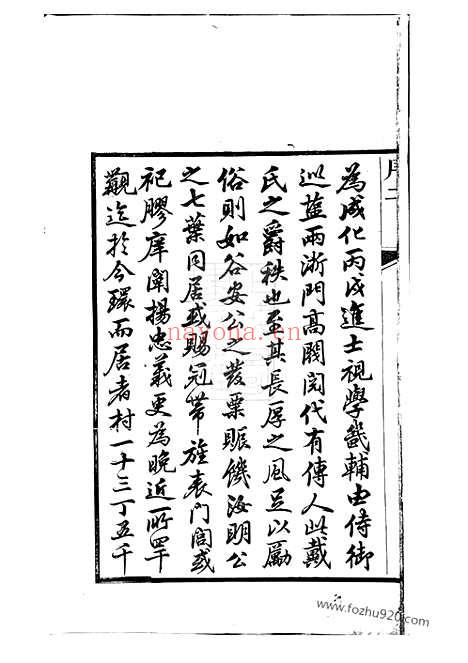 為成化丙戌進士視學畿輔由侍御
巡鹽兩浙門高閥閱代有傳人此戴
氏之爵秩也至其長厚之風足以勵
俗則如谷安公之發粟賑饑海明公
之七葉同居或賜冠帶旌表門閭或
祀膠庠闡揚忠義更為晚近所罕
觀迄於今環而居者村一十三丁五千
www.fozhu920.com